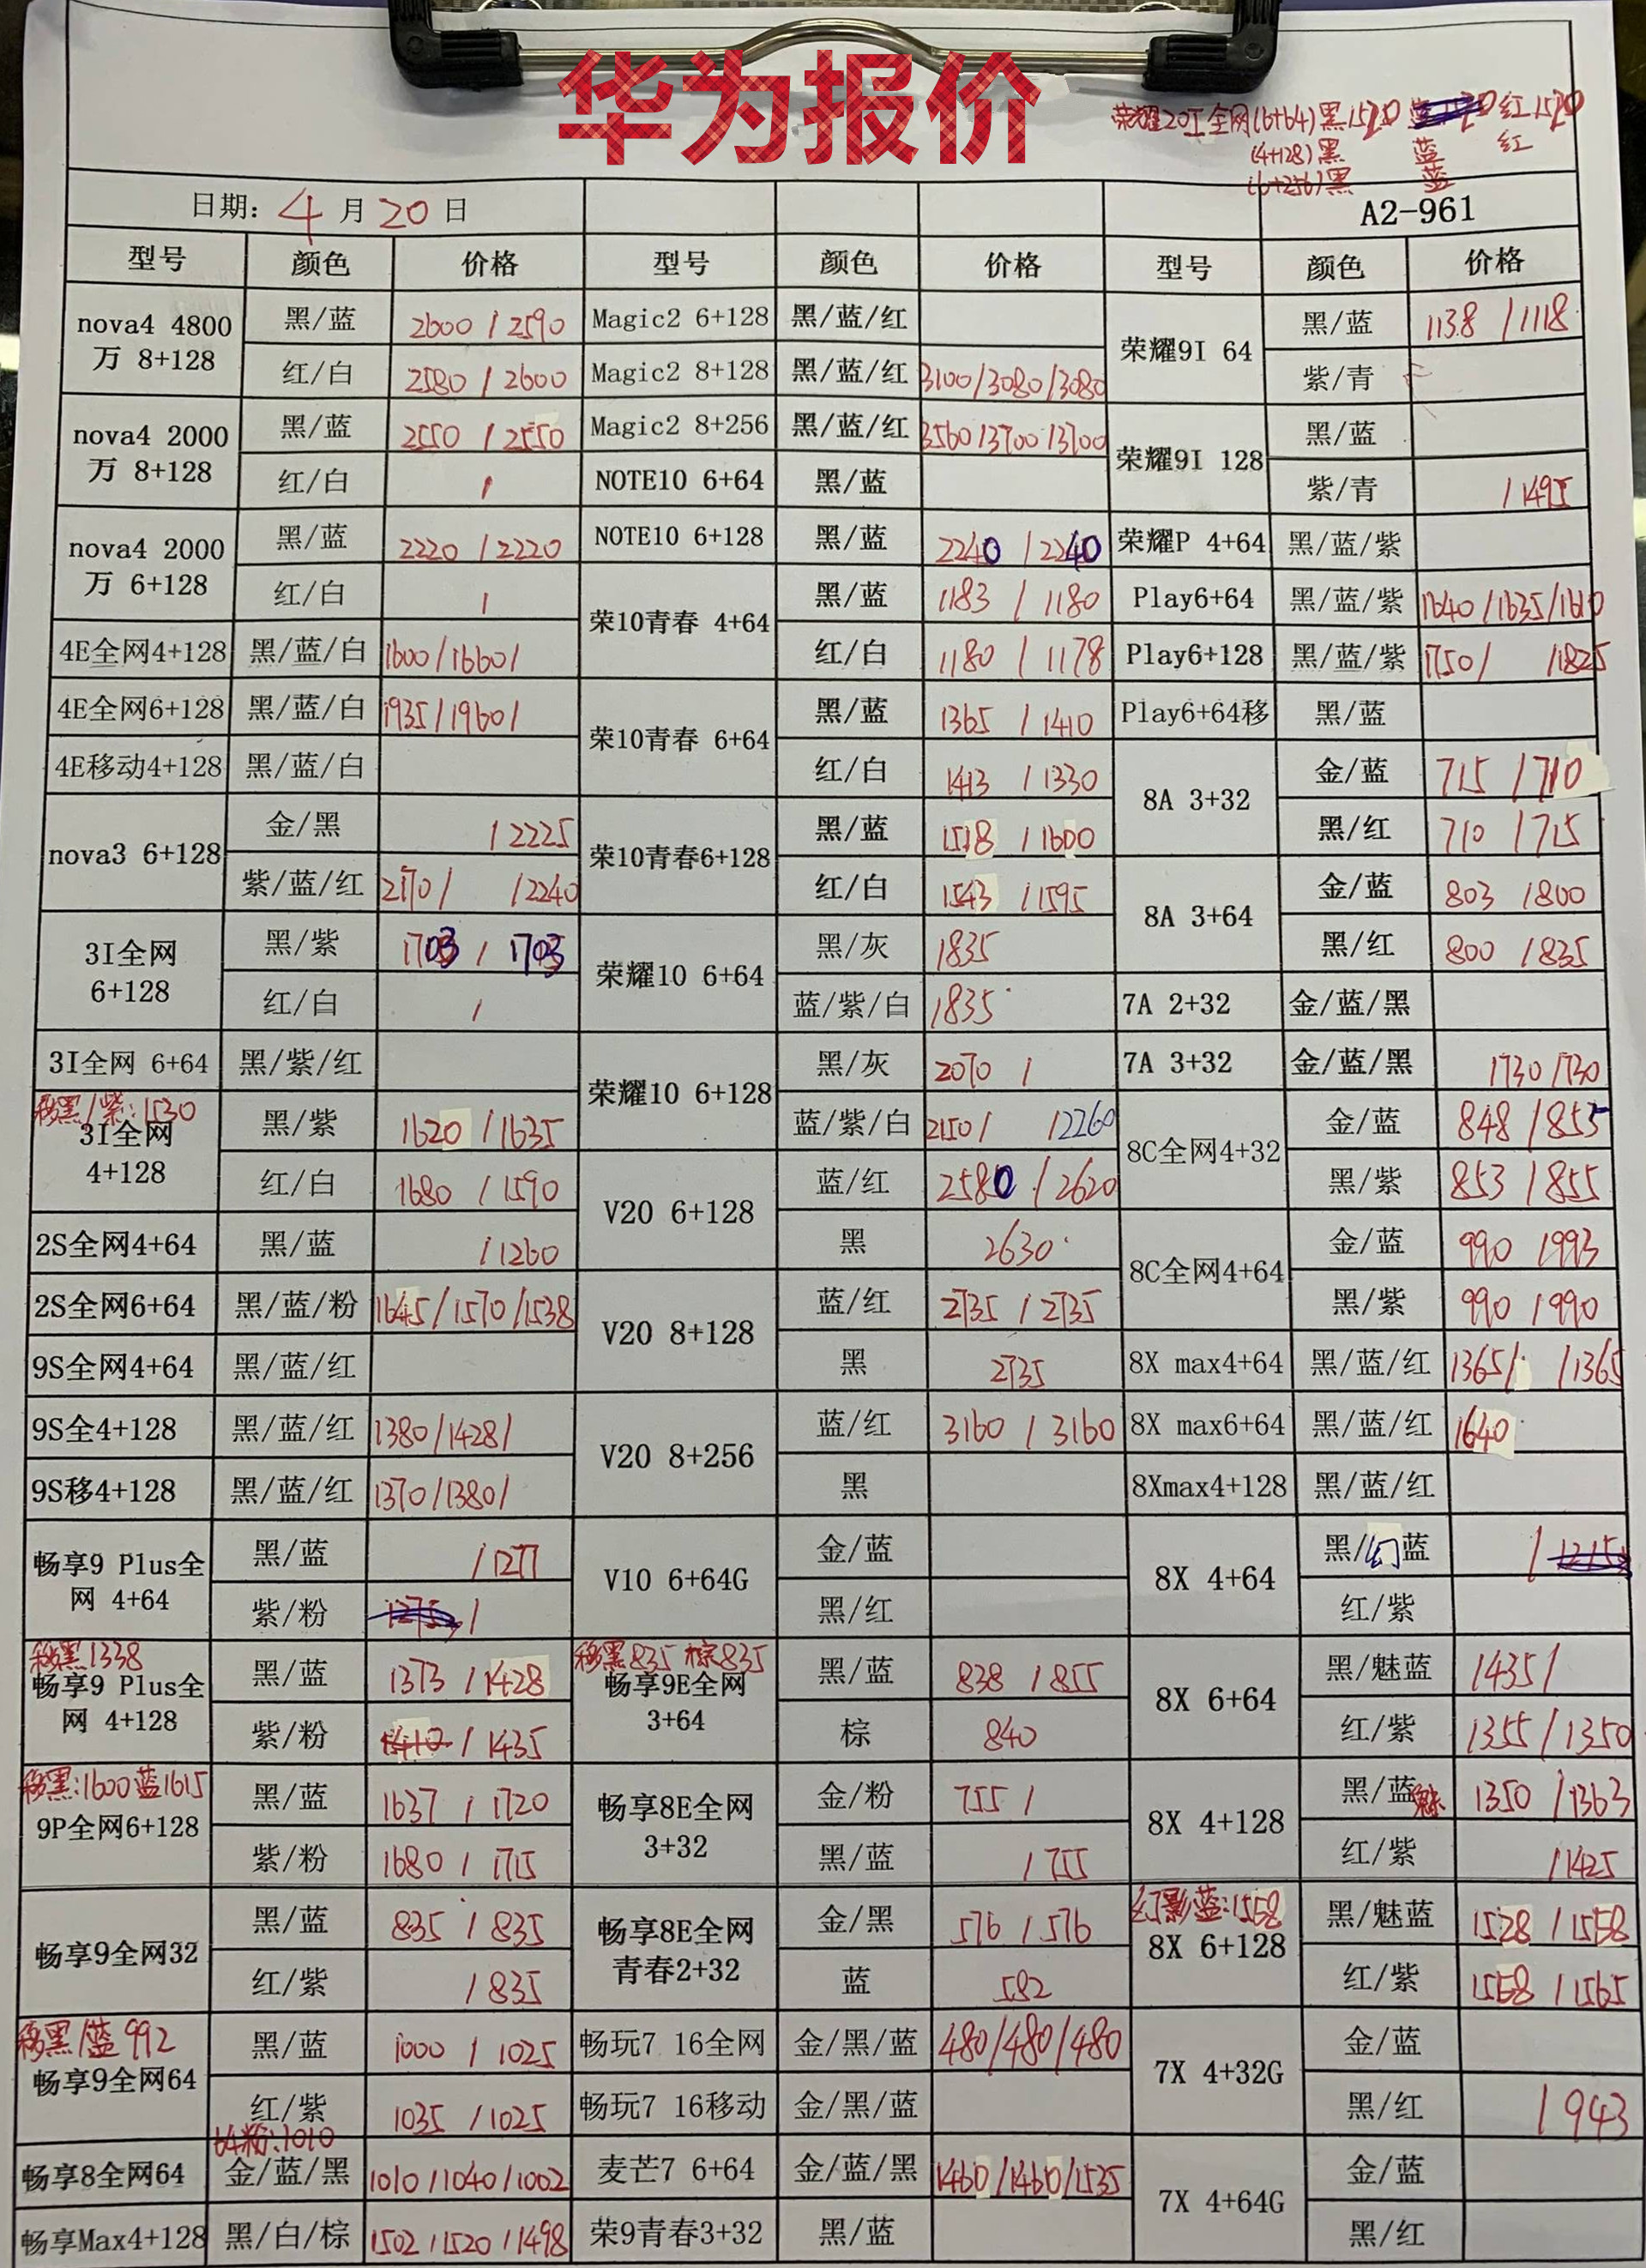 华为报价
荣耀20I全网(6+64)黑1520 红1520
(4+128)黑 蓝 红
(6+256)黑 蓝
日期: 4月20日 A2-961
型号 颜色 价格 型号 颜色 价格 型号 颜色 价格
nova4 4800万 8+128 黑/蓝 2600/2590 Magic2 6+128 黑/蓝/红 荣耀9I 64 黑/蓝 1138/1118
红/白 2580/2600 Magic2 8+128 黑/蓝/红 3100/3080/3080 紫/青
nova4 2000万 8+128 黑/蓝 2550/2550 Magic2 8+256 黑/蓝/红 3560/3700/3700 荣耀9I 128 黑/蓝
红/白 / NOTE10 6+64 黑/蓝 紫/青 /1495
nova4 2000万 6+128 黑/蓝 2220/2220 NOTE10 6+128 黑/蓝 2240/2240 荣耀P 4+64 黑/蓝/紫
红/白 / 荣10青春 4+64 黑/蓝 1183/1180 Play6+64 黑/蓝/紫 1640/1635/1610
4E全网4+128 黑/蓝/白 1600/1660/ 红/白 1180/1178 Play6+128 黑/蓝/紫 1750/ /1825
4E全网6+128 黑/蓝/白 1935/1960/ 荣10青春 6+64 黑/蓝 1365/1410 Play6+64移 黑/蓝
4E移动4+128 黑/蓝/白 红/白 1413/1330 8A 3+32 金/蓝 715/710
nova3 6+128 金/黑 /2225 荣10青春6+128 黑/蓝 1518/1600 黑/红 710/715
紫/蓝/红 2170/ /2240 红/白 1543/1595 8A 3+64 金/蓝 803/800
3I全网 6+128 黑/紫 1703/1703 荣耀10 6+64 黑/灰 1835 黑/红 800/835
红/白 / 蓝/紫/白 1835 7A 2+32 金/蓝/黑
3I全网 6+64 黑/紫/红 荣耀10 6+128 黑/灰 2070/ 7A 3+32 金/蓝/黑 1730/1730
移黑/紫:1530
3I全网 4+128 黑/紫 1620/1635 蓝/紫/白 2150/ /2260 8C全网4+32 金/蓝 848/855
红/白 1680/1590 V20 6+128 蓝/红 2580/2620 黑/紫 853/855
2S全网4+64 黑/蓝 /1260 黑 2630 8C全网4+64 金/蓝 990/993
2S全网6+64 黑/蓝/粉 1645/1570/1538 V20 8+128 蓝/红 2735/2735 黑/紫 990/990
9S全网4+64 黑/蓝/红 黑 2735 8X max4+64 黑/蓝/红 1365/ /1365
9S全4+128 黑/蓝/红 1380/1428/ V20 8+256 蓝/红 3160/3160 8X max6+64 黑/蓝/红 1640
9S移4+128 黑/蓝/红 1370/1380/ 黑 8Xmax4+128 黑/蓝/红
畅享9 Plus全网 4+64 黑/蓝 /1277 V10 6+64G 金/蓝 8X 4+64 黑/幻蓝 /
紫/粉 / 黑/红 红/紫
移黑1338 移黑835 棕835
畅享9 Plus全网 4+128 黑/蓝 1373/1428 畅享9E全网 3+64 黑/蓝 838/855 8X 6+64 黑/魅蓝 1435/
紫/粉 /1435 棕 840 红/紫 1355/1350
移黑:1600 蓝1615
9P全网6+128 黑/蓝 1637/1720 畅享8E全网 3+32 金/粉 755/ 8X 4+128 黑/蓝魅 1350/1363
紫/粉 1680/1715 黑/蓝 /755 红/紫 /1425
幻影蓝:1558
畅享9全网32 黑/蓝 835/835 畅享8E全网 青春2+32 金/黑 576/576 8X 6+128 黑/魅蓝 1528/1558
红/紫 /835 蓝 582 红/紫 1558/1565
移黑/蓝 992
畅享9全网64 黑/蓝 1000/1025 畅玩7 16全网 金/黑/蓝 480/480/480 7X 4+32G 金/蓝
红/紫 1035/1025 畅玩7 16移动 金/黑/蓝 黑/红 /943
64粉:1010
畅享8全网64 金/蓝/黑 1010/1040/1002 麦芒7 6+64 金/蓝/黑 1460/1460/1535 7X 4+64G 金/蓝
畅享Max4+128 黑/白/棕 1502/1520/1498 荣9青春3+32 黑/蓝 黑/红